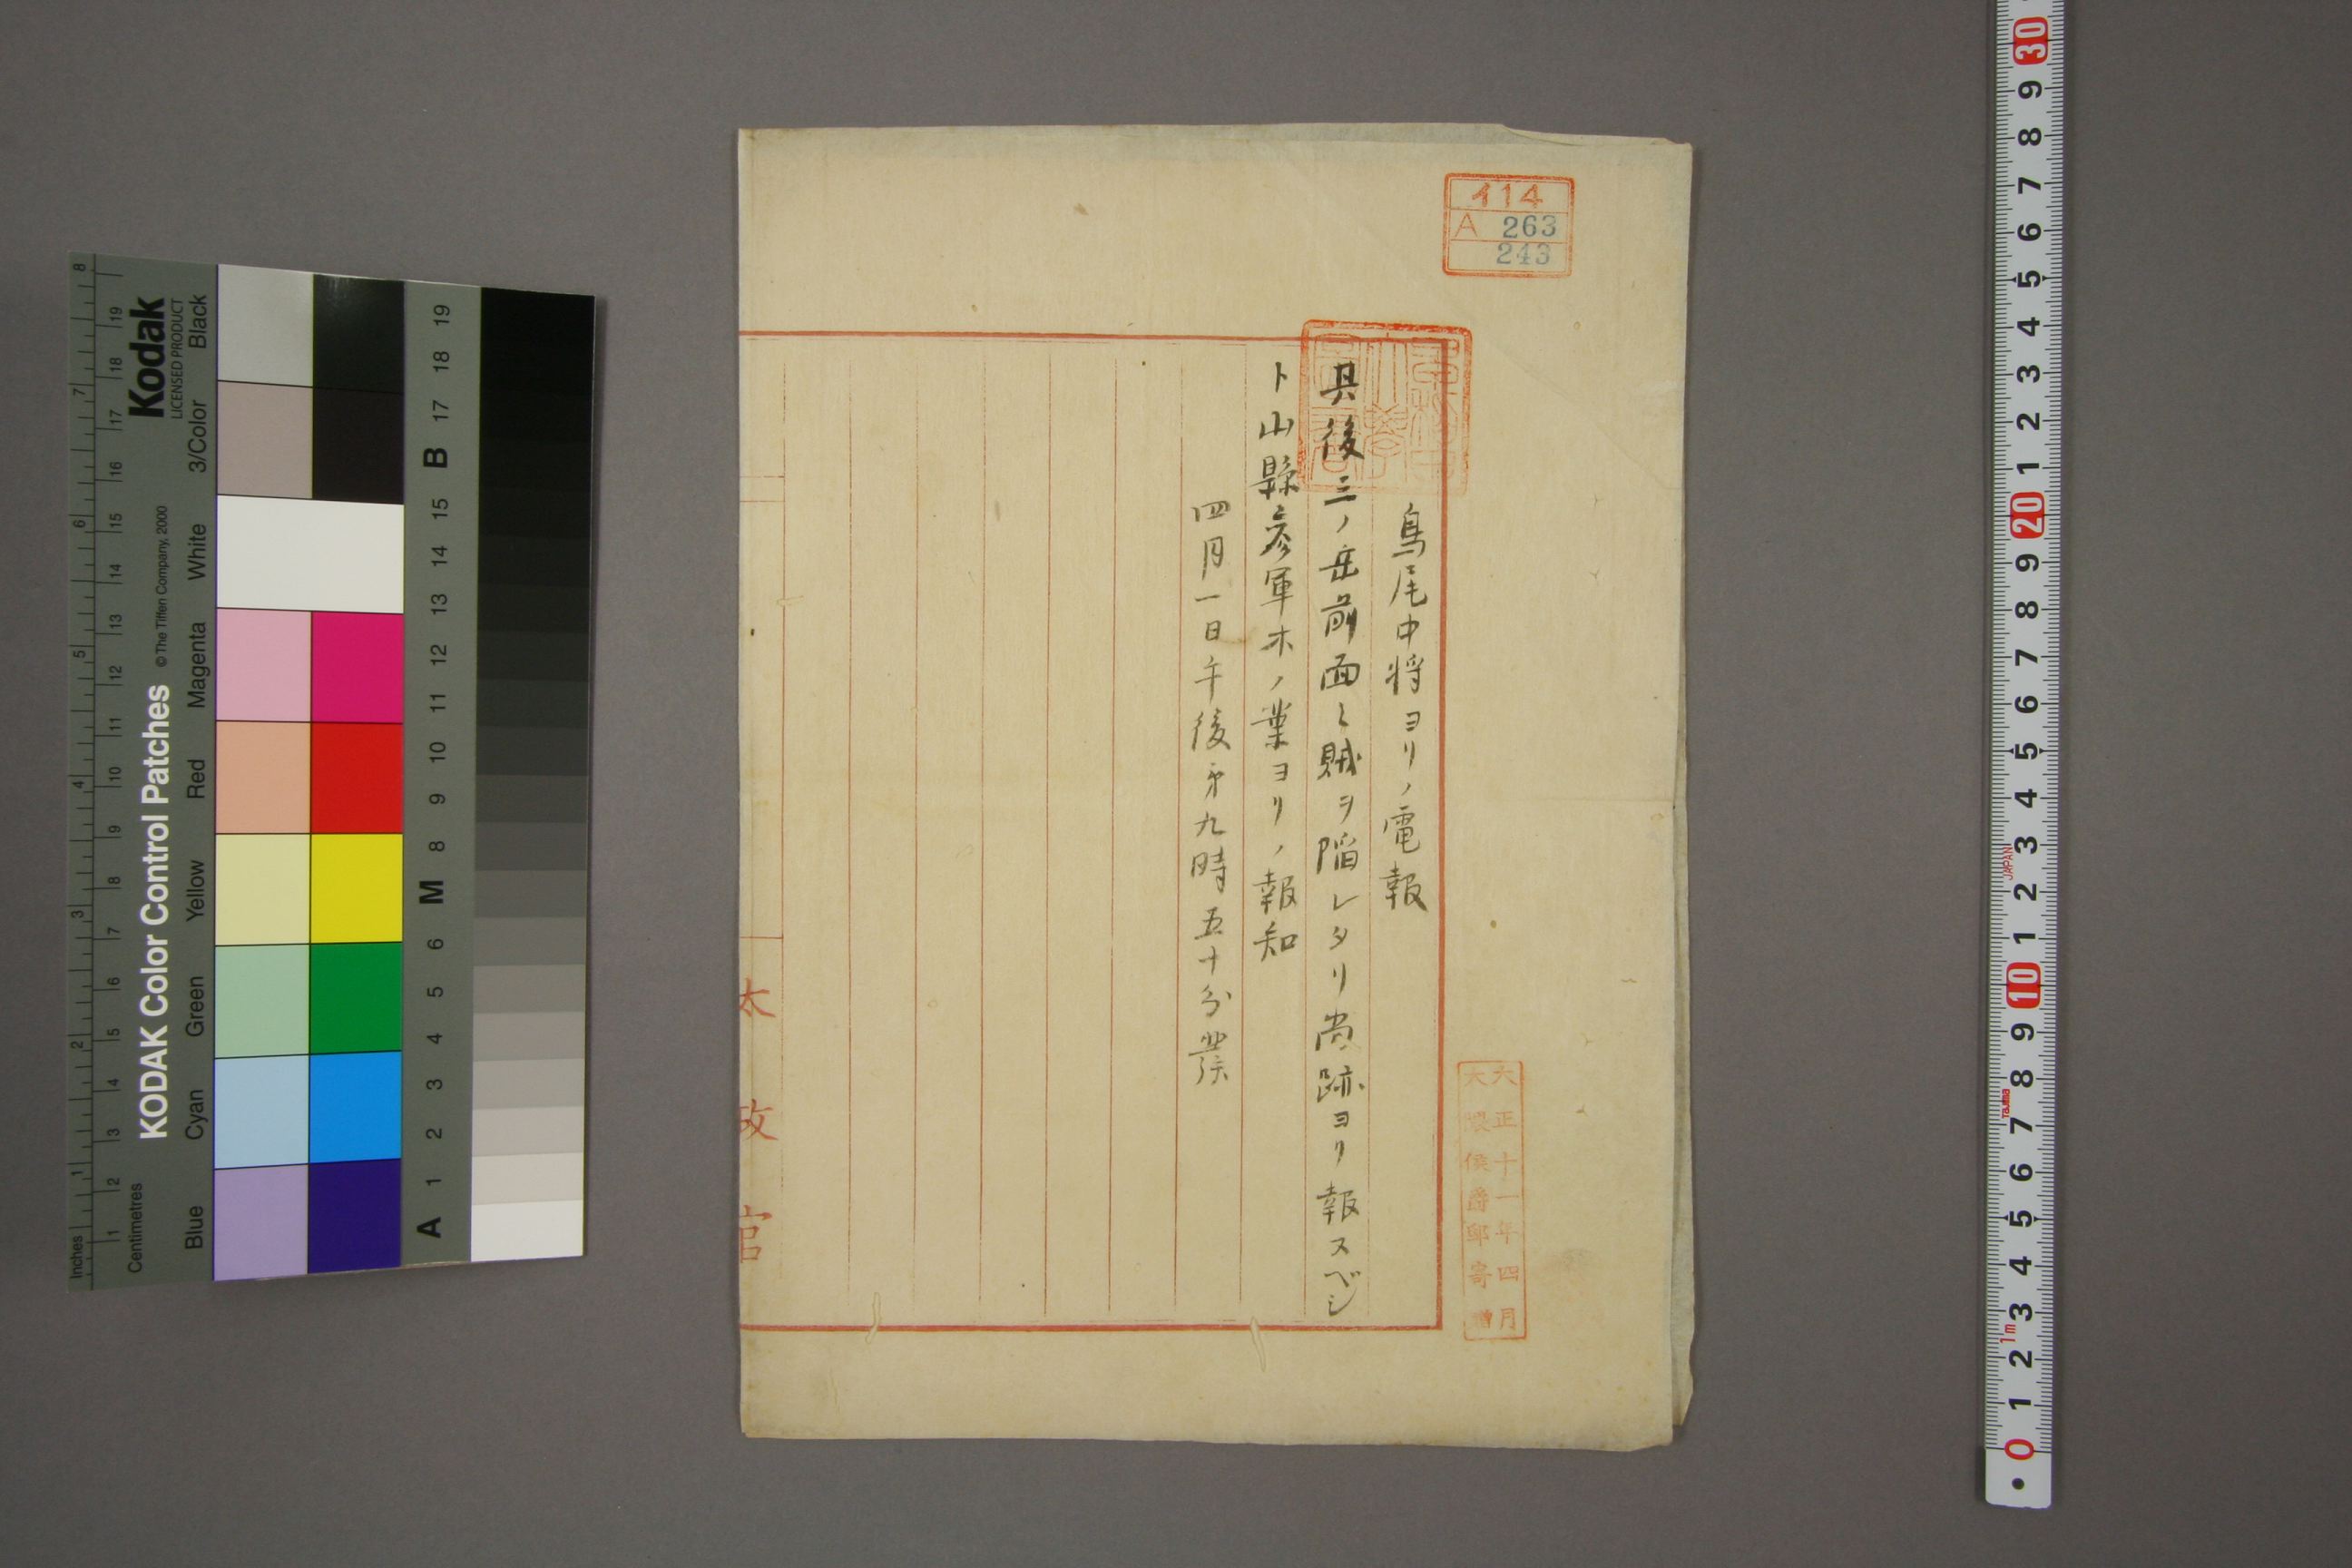 イ14
A 263
243
鳥尾中将ヨリノ電報
其後三ノ岳前面ミ賊ヲ陥レタリ尚跡ヨリ報スベシ
ト山縣参軍木ノ葉ヨリノ報知
四月一日午後第九時五十分発
太政官
大正十一年四月
大隈侯爵郷寄贈
Kodak
LICENSED PRODUCT
KODAK Color Control Patches
© The Tiffen Company, 2000
Inches
1 2 3 4 5 6 7 8
Centimetres
1 2 3 4 5 6 7 8 9 10 11 12 13 14 15 16 17 18 19
Blue Cyan Green Yellow Red Magenta White 3/Color Black
A 1 2 3 4 5 6 M 8 9 10 11 12 13 14 15 B 17 18 19
30
9
8
7
6
5
4
3
2
1
20
9
8
7
6
5
4
3
JAPAN
2
1
10
9
8
Tajima
7
6
5
4
3
1m
2
1
0